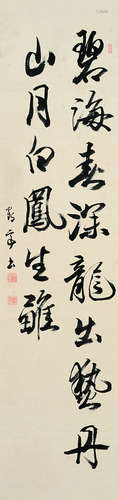 碧海春深龍出蟄丹
山月白鳳生雛